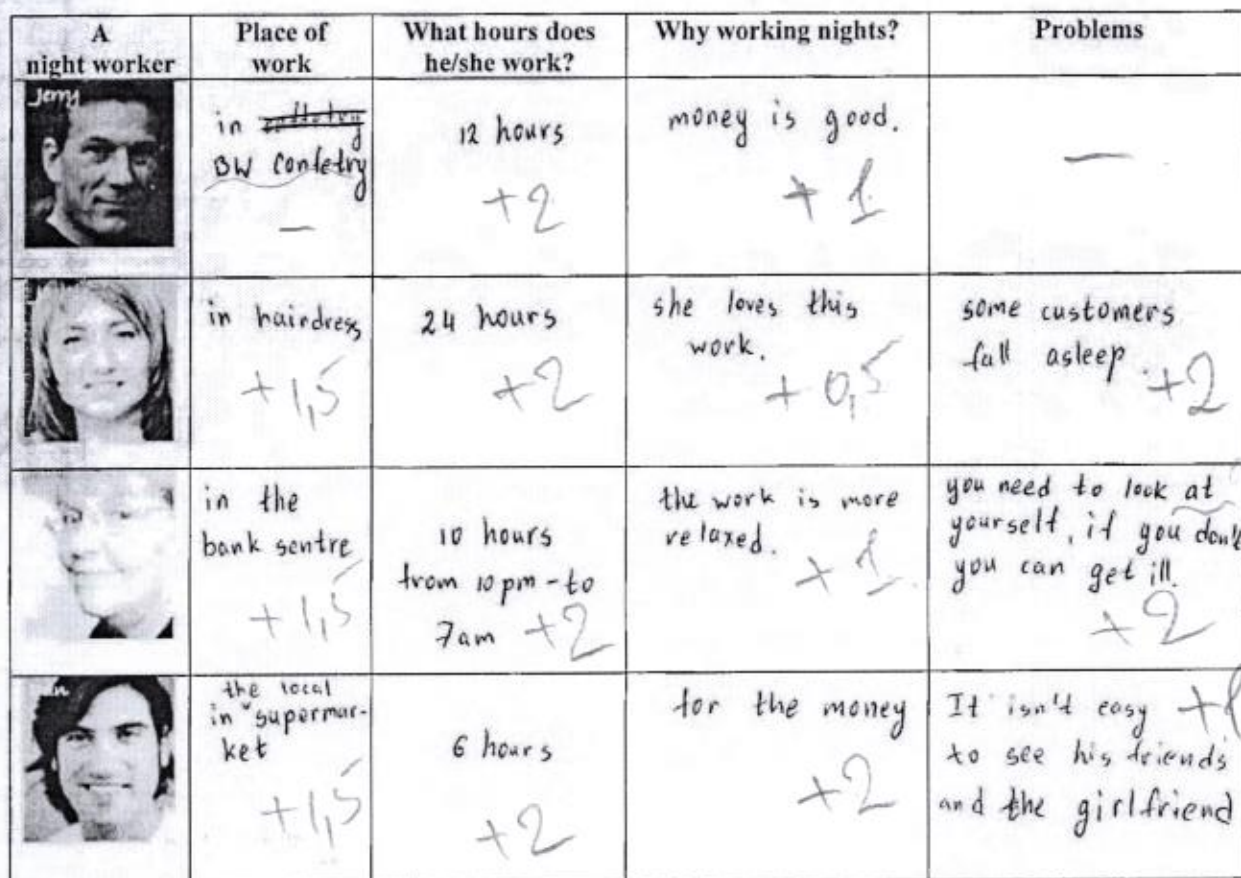 A
night worker
Place of
work
What hours does
he/she work?
Why working nights?
Problems
Jerry
in
BW Confetry
—
12 hours
+2
money is good.
+1
—
in hairdress
+1,5
24 hours
+2
she loves this
work.
+0,5
some customers
fall asleep.
+2
in the
bank sentre
+1,5
10 hours
from 10 pm - to
7am +2
the work is more
relaxed.
+1
you need to look at
yourself, if you don't
you can get ill.
+2
the local
in supermar-
ket
+1,5
6 hours
+2
for the money
+2
It isn't easy
to see his friends
and the girlfriend